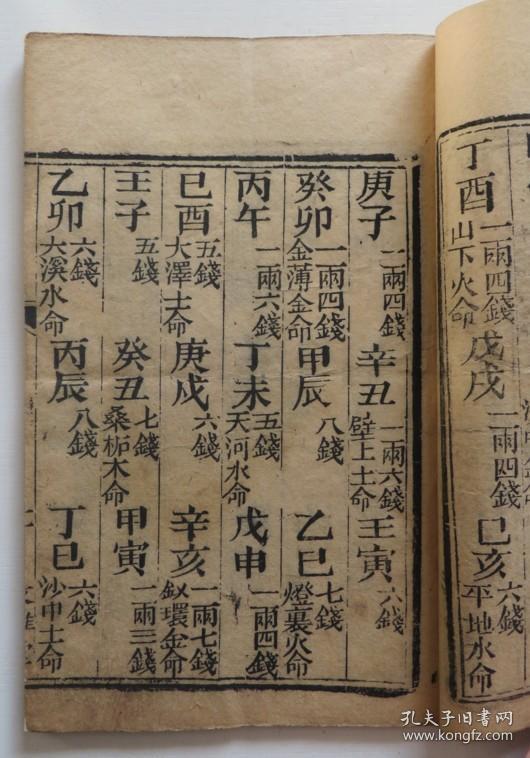 丁酉 一兩四錢 山下火命 戊戌 一兩四錢 己亥 平地水命
庚子 二兩四錢 辛丑 一兩六錢 壁上土命 壬寅 錢
癸卯 一兩四錢 金薄金命 甲辰 八錢 乙巳 七錢 燈裏火命
丙午 一兩六錢 丁未 五錢 天河水命 戊申 一兩四錢
己酉 五錢 大澤土命 庚戌 六錢 辛亥 一兩七錢 釵環金命
壬子 五錢 癸丑 七錢 桑柘木命 甲寅 一兩三錢
乙卯 六錢 大溪水命 丙辰 八錢 丁巳 六錢 沙中土命
孔夫子旧书网
www.kongfz.com